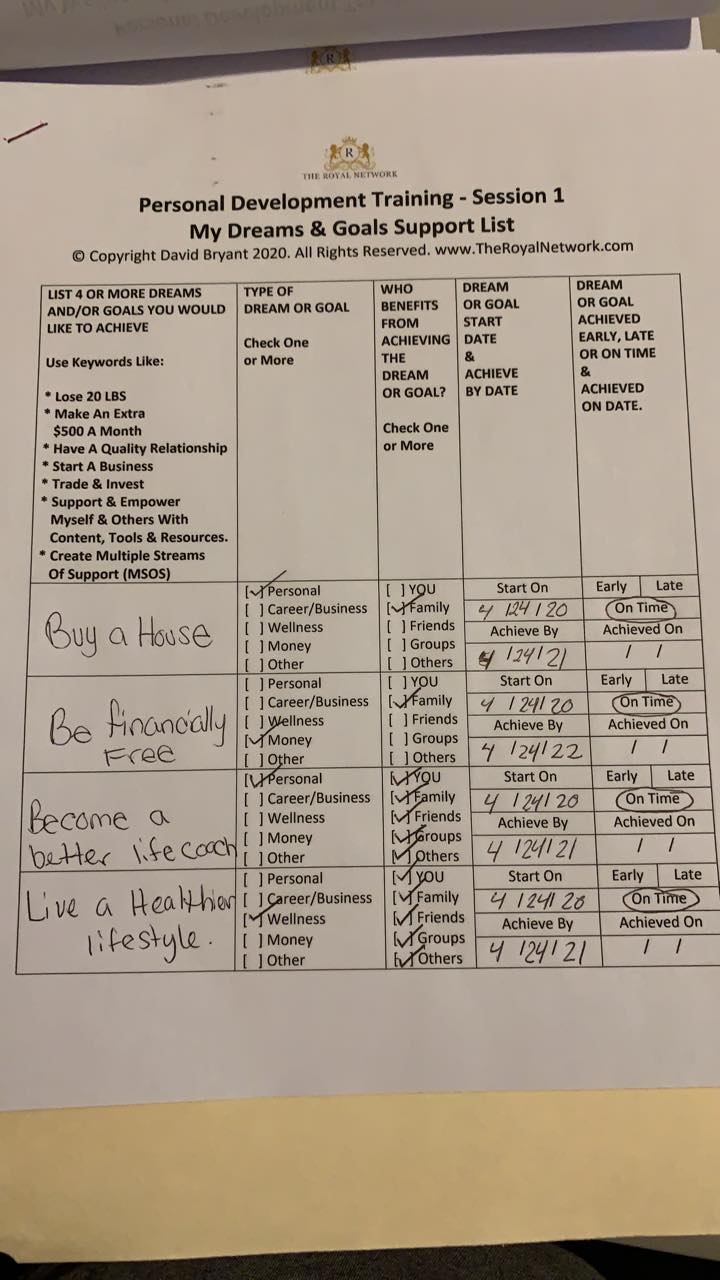 R
R
THE ROYAL NETWORK
Personal Development Training - Session 1
My Dreams & Goals Support List
© Copyright David Bryant 2020. All Rights Reserved. www.TheRoyalNetwork.com
LIST 4 OR MORE DREAMS
AND/OR GOALS YOU WOULD
LIKE TO ACHIEVE
Use Keywords Like:
* Lose 20 LBS
* Make An Extra
$500 A Month
* Have A Quality Relationship
* Start A Business
* Trade & Invest
* Support & Empower
Myself & Others With
Content, Tools & Resources.
* Create Multiple Streams
Of Support (MSOS)
TYPE OF
DREAM OR GOAL
Check One
or More
WHO
BENEFITS
FROM
ACHIEVING
THE
DREAM
OR GOAL?
Check One
or More
DREAM
OR GOAL
START
DATE
&
ACHIEVE
BY DATE
DREAM
OR GOAL
ACHIEVED
EARLY, LATE
OR ON TIME
&
ACHIEVED
ON DATE.
Buy a House
[✓] Personal
[ ] Career/Business
[ ] Wellness
[ ] Money
[ ] Other
[ ] YOU
[✓] Family
[ ] Friends
[ ] Groups
[ ] Others
Start On
4 /24/20
Achieve By
4 /24/21
Early Late
On Time
Achieved On
/ /
Be financially
Free
[ ] Personal
[ ] Career/Business
[ ] Wellness
[✓] Money
[ ] Other
[ ] YOU
[✓] Family
[ ] Friends
[ ] Groups
[ ] Others
Start On
4 /24/20
Achieve By
4 /24/22
Early Late
On Time
Achieved On
/ /
Become a
better life coach
[✓] Personal
[ ] Career/Business
[ ] Wellness
[ ] Money
[ ] Other
[✓] YOU
[✓] Family
[✓] Friends
[✓] Groups
[✓] Others
Start On
4 /24/20
Achieve By
4 /24/21
Early Late
On Time
Achieved On
/ /
Live a Healthier
lifestyle.
[ ] Personal
[ ] Career/Business
[✓] Wellness
[ ] Money
[ ] Other
[✓] YOU
[✓] Family
[✓] Friends
[✓] Groups
[✓] Others
Start On
4 /24/20
Achieve By
4 /24/21
Early Late
On Time
Achieved On
/ /